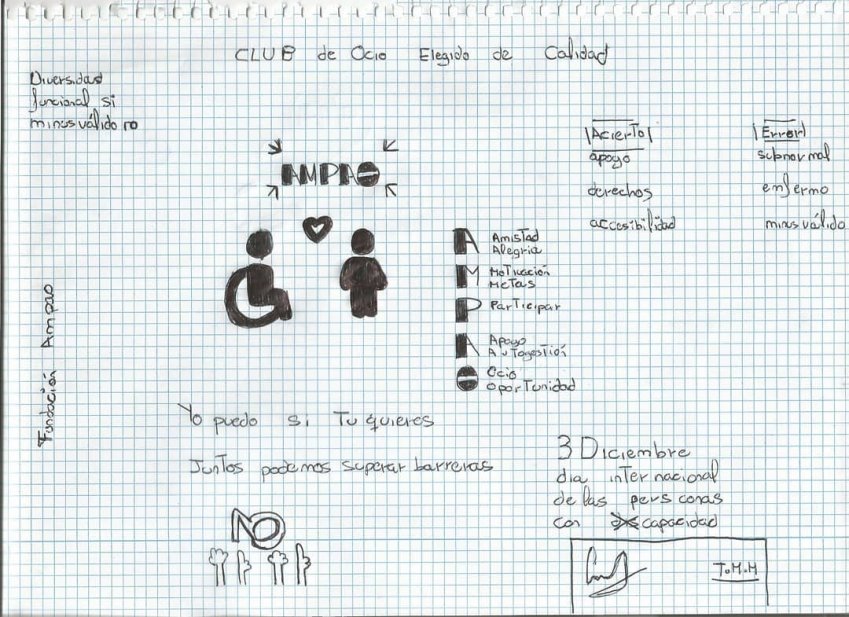 CLUB de Ocio Elegido de Calidad
Diversidad
funcional si
minusválido no
AMPAO
Acierto
apoyo
derechos
accesibilidad
Error
subnormal
enfermo
minusválido
A Amistad
Alegria
M Motivación
Metas
P Participar
A Apoyo
Autogestión
O Ocio
oportunidad
Fundación Ampao
Yo puedo si Tu quieres
Juntos podemos superar barreras
NO
3 Diciembre
dia internacional
de las personas
con discapacidad
T.M.M